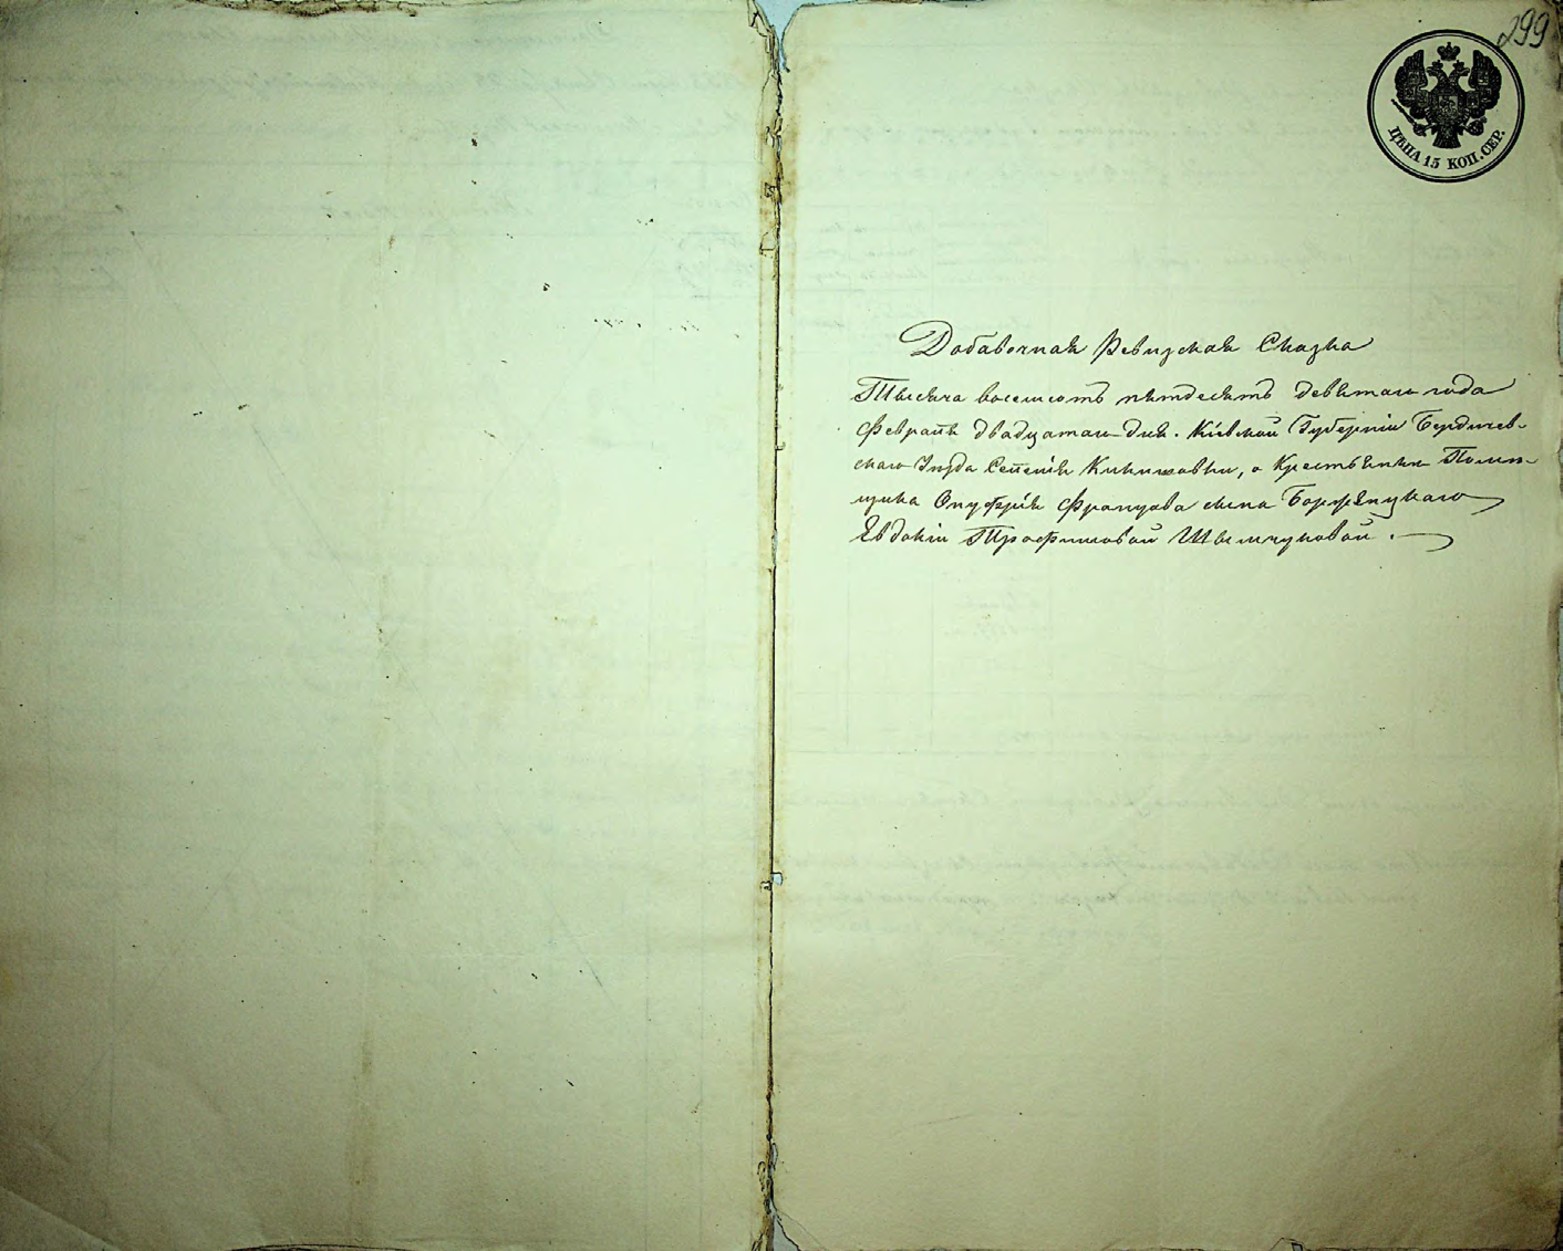 299
ЦѢНА 15 КОП. СЕР.
Добавочная Ревизская Сказка
Тысяча восемсотъ пятдесятъ девятаго года
Февраля двадцатаго дня. Кіевской Губерніи Бердичев-
скаго Уѣзда Селенія Кикишовки, о Крестьянки Помѣ-
щика Онуфрія Францова сына
Евдокіи Трофимовой